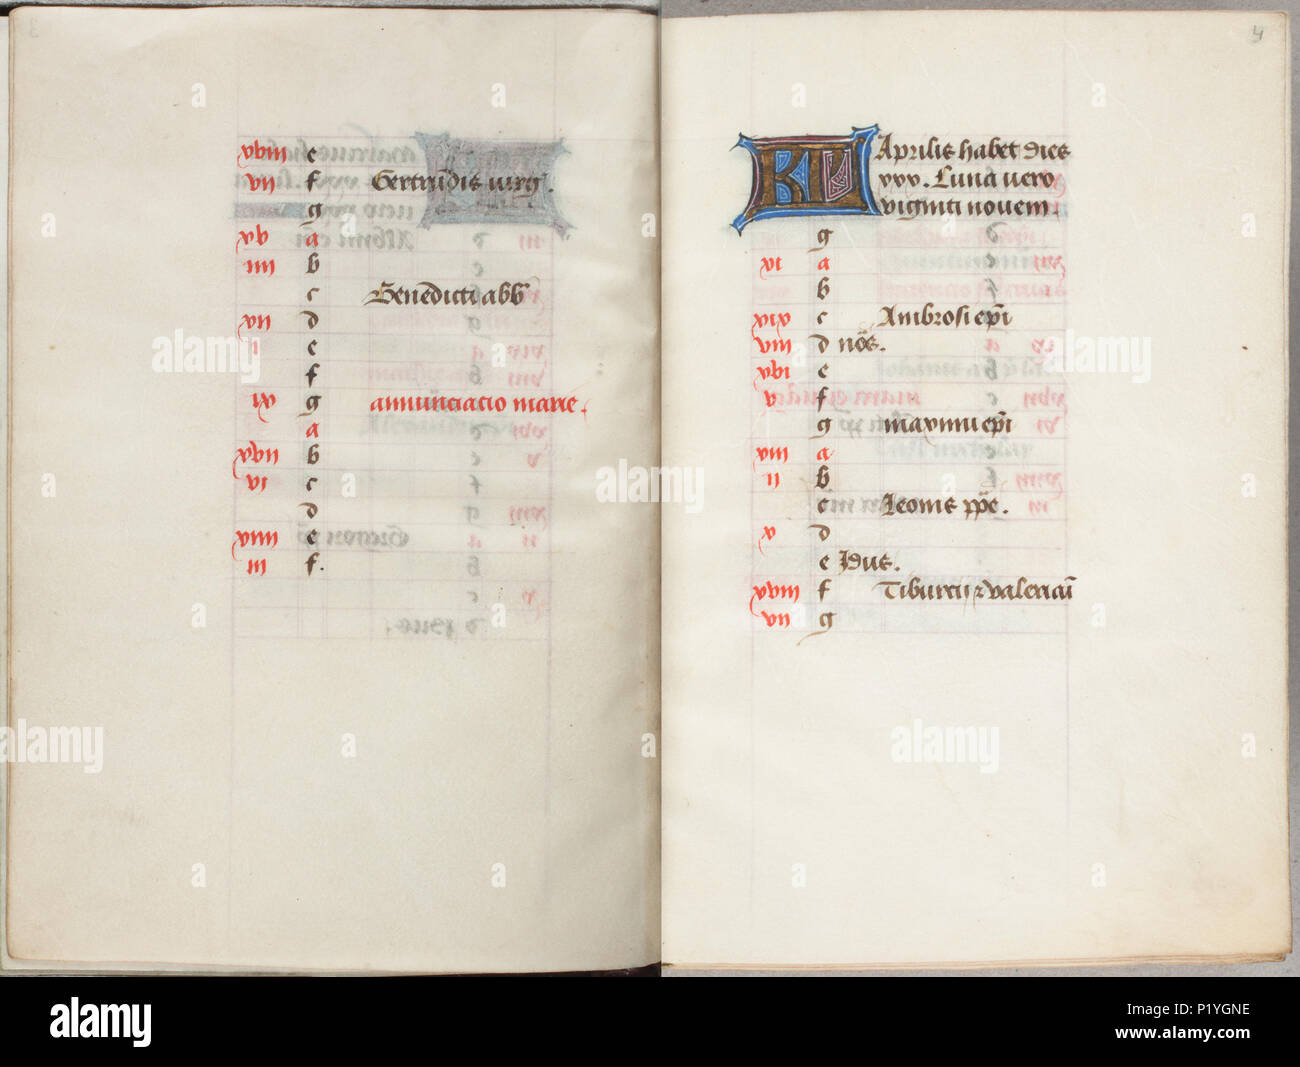 xviii e
vii f Gertrudis virg.
g
xv a
iiii b
c Benedicti abb
xii d
i e
f
ix g annunciacio marie.
a
xvii b
vi c
d
xiiii e
iii f.
4
KL Aprilis habet dies
xxx. Luna vero
viginti novem.
g
xi a
b
xix c Ambrosi epi
viii d nōs.
xvi e
v f
g maximi epi
xiii a
ii b
c Leonis ppe.
x d
e Idus.
xviii f Tiburtii et valeriani
vii g
a alamy
alamy
www.alamy.com
Image ID: P1YGNE